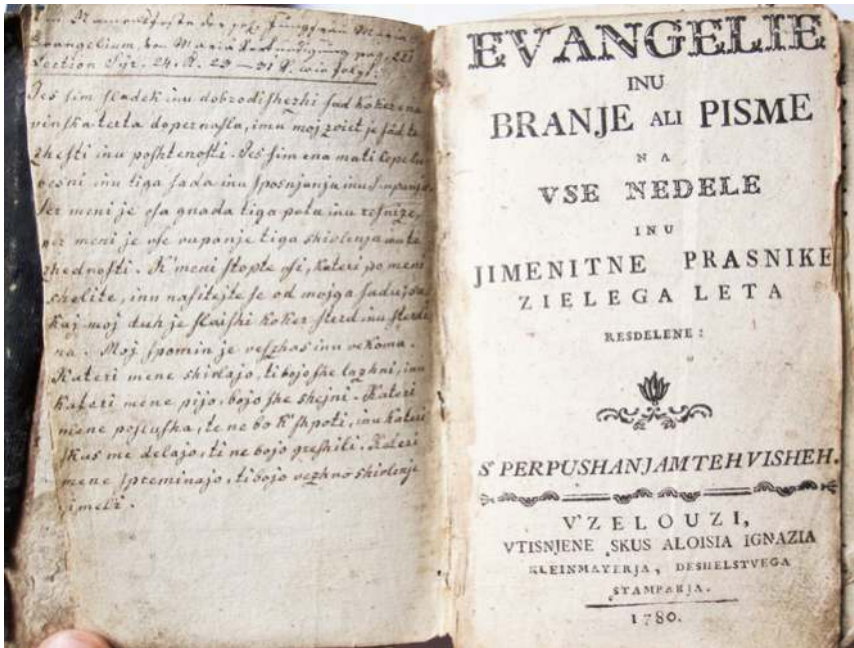 Evangelium, von Maria Verkündigung pag. 221
Lection Syr. 24. K. 23–31 V. wie folgt:
Jes ſim ſladek inu dobrodiſhezhi ſad koker ena
vinſka terta dopernaſla, inu moj zviet je ſád te
zheſti inu poſhtenoſti. Jes ſim ena mati lepe lu-
besni inu tiga ſada inu ſposnjanja inu
Per meni je vſa gnada tiga pota inu reſnize,
per meni je vſe vupanje tiga shivlenja inu te
zhednoſti. K' meni ſtopte vſi, kateri po meni
shelite, inu naſitejte ſe od mojga ſadu,
kaj moj duh je ſlajſhi koker ſterd inu ſterd
na. Moj ſpomin je veſzhas inu vekoma.
Kateri mene shivlajo, ti bojo ſhe lazhni, inu
kateri mene pijo, bojo ſhe shejni. Kateri
mene poſluſha, te ne bo k' ſhpoti, inu kateri
ſkus me delajo, ti ne bojo greſhili. Kateri
mene ſpreminajo, ti bojo vezhno shivlenje
imeli.
EVANGELIE
INU
BRANJE ALI PISME
NA
VSE NEDELE
INU
JIMENITNE PRASNIKE
ZIELEGA LETA
RESDELENE:
S' PERPUSHANJAM TEH VISHEH.
V'ZELOUZI,
VTISNJENE SKUS ALOISIA IGNAZIA
KLEINMAYERJA, DESHELSTVEGA
STAMPARJA.
1780.